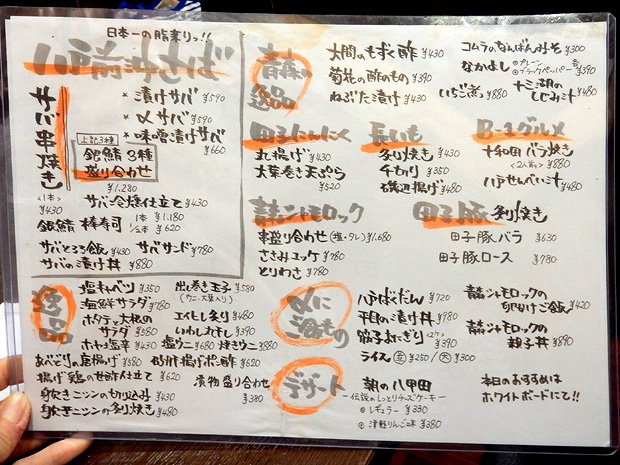 日本一の脂乗りっ!!
八戸前沖さば
サバ串焼き
<1本>
¥430
* 漬けサバ ¥590
* 〆サバ ¥590
* 味噌漬けサバ ¥660
上記3種
銀鯖3種
盛り合わせ
¥1,280
サバ冷燻仕立て ¥430
銀鯖 棒寿司 1本 ¥1,180
1/2本 ¥620
サバとろろ飯 ¥430 サバサンド ¥780
サバの漬け丼 ¥880
青森の
逸品
大間のもずく酢 ¥430
菊花の酢のもの ¥390
ねぶた漬け ¥430
コムラのなんばんみそ ¥300
なかよし ・プレーン
・ブラックペッパー 各¥390
いちご煮 ¥880
十三湖の
しじみ汁 ¥480
田子にんにく
丸揚げ ¥430
大葉巻き天ぷら
¥520
長いも
炙り焼き ¥430
千切り ¥350
磯辺揚げ ¥480
B-1グルメ
十和田バラ焼き
<2人前> ¥880
八戸せんべい汁
¥480
青森シャモロック
串盛り合わせ(塩・タレ) ¥1,680
ささみユッケ ¥780
とりわさ ¥780
田子豚 炙り焼き
田子豚バラ ¥630
田子豚ロース ¥780
逸品
塩キャベツ ¥350
海鮮サラダ ¥780
ホタテと大根の
サラダ ¥580
ホヤ塩辛 ¥430
あべどりの唐揚げ ¥580
揚げ鶏の甘酢仕立て ¥620
身欠きニシンの切り込み ¥430
身欠きニシンの炙り焼き ¥480
出し巻き玉子 ¥580
(ウニ・大葉入り)
エイヒレ炙り ¥480
いわし丸干し ¥390
塩ウニ ¥680 焼きウニ ¥880
揚げポン酢 ¥620
漬物盛り合わせ
¥380
〆に
ごはんもの
八戸ばくだん ¥720
平目の漬け丼 ¥980
筋子おにぎり <2ケ>
¥390
ライス 並 ¥250 / 大 ¥300
青森シャモロックの
卵かけご飯 ¥420
青森シャモロックの
親子丼 ¥880
デザート
朝の八甲田
-伝説のしっとりチーズケーキ-
レギュラー ¥390
津軽りんご味 ¥380
本日のおすすめは
ホワイトボードにて!!